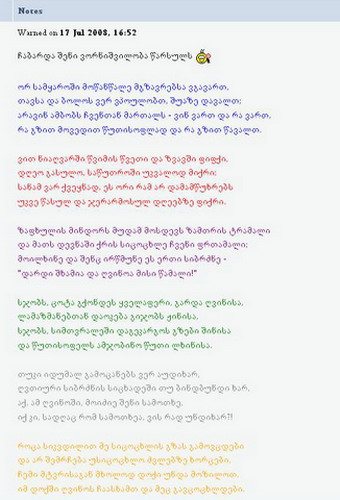 Notes
Warned on 17 Jul 2008, 16:52
ჩაბარდა შენი ვორნიშვილობა წარსულს
ორ სამყაროში მოწანწალე მგზავრებსა ვგავართ,
თავსა და ბოლოს ვერ ვპოულობთ, შუაზე დავალთ;
არავინ ამბობს ჩვენთან მართალს - ვინ ვართ და რა ვართ,
რა გზით მოვედით წუთისოფლად და რა გზით წავალთ.
ვით ნიაღვარში წვიმის წვეთი და ზვავში ფიფქი,
დღეო გასულო, საწუთროში უკვალოდ მიქრი;
სანამ ვარ ქვეყნად, ეს ორი რამ არ დამამწუხრებს
უკვე წასულ და ჯერარმოსულ დღეებზე ფიქრი.
ზაფხულის მინდორს მუდამ მოსდევს ზამთრის ტრამალი
და მათს დევნაში ქრის სიცოცხლე ჩვენი ფრთამალი;
მოილხინე და შენც ირწმუნე ეს ერთი სიბრძნე -
"დარდი შხამია და ღვინოა მისი წამალი!"
სჯობს, ცოტა გქონდეს ყველაფერი, გარდა ღვინისა,
ლამაზმანებთან დაოკება გიჯობს ჟინისა,
სჯობს, სიმთვრალეში დაგეკარგოს გზები შინისა
და წუთისოფელს ამჯობინო წუთი ლხინისა.
თუკი იდუმალ გამოცანებს ვერ აუდიხარ,
ღვთიური სიბრძნის სიცხადეში თუ ბინდბუნდი ხარ,
აქ, ამ ღვინოში, მოიძიე შენი სამოთხე,
იქ კი, სადღაც რომ სამოთხეა, ვის რად უნდიხარ?!
როცა სიკვდილით მე სიცოცხლის გზას გამოვცდები
და არ შემრჩება უსიცოცხლო ძვლებზე ხორცები,
ჩემი მტვრისაგან მხოლოდ დოქი უნდა მოზილოთ,
იმ დოქში ღვინოს ჩაასხამთ და მეც გავცოცხლდები.